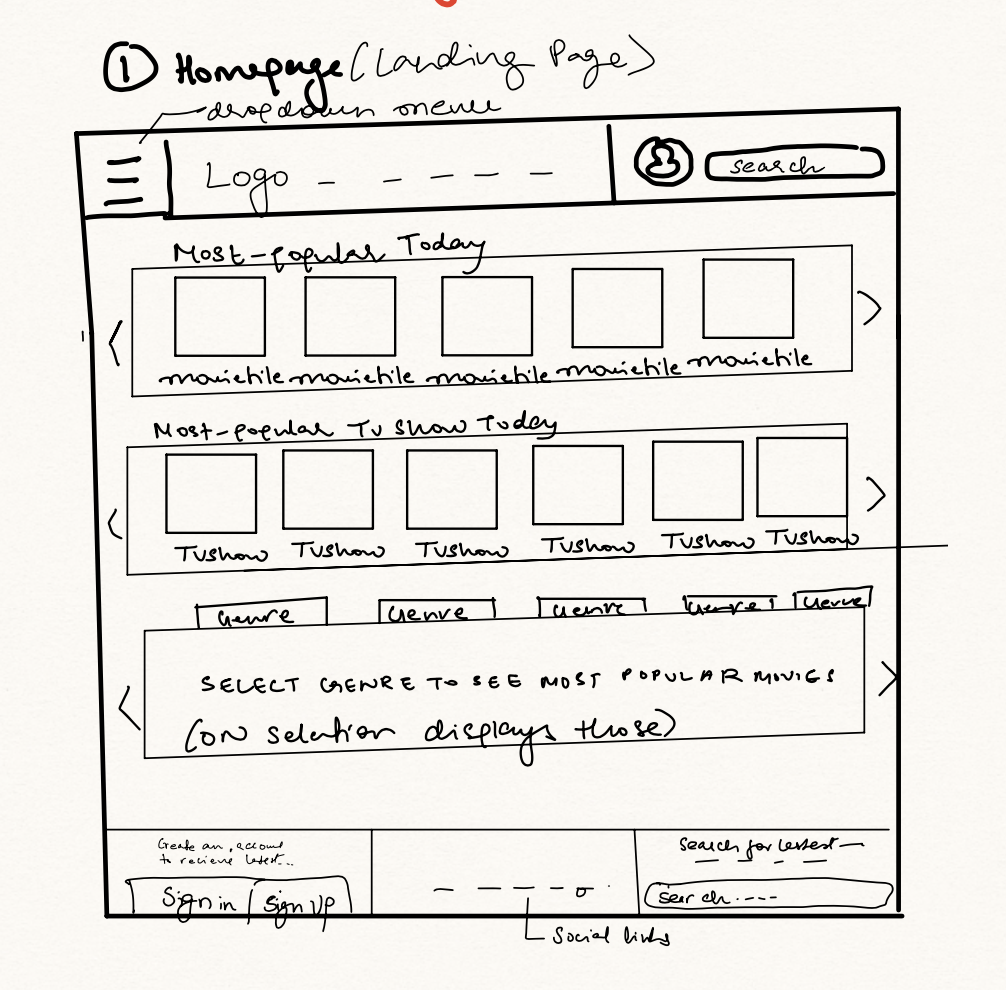 1 Homepage (Landing Page)
dropdown menu
Logo
search
Most-popular Today
movietile movietile movietile movietile movietile
Most-popular Tv Show Today
TVshow TVshow TVshow TVshow TVshow TVshow
Genre Genre Genre Genre Genre
SELECT GENRE TO SEE MOST POPULAR MOVIES
(ON selection displays those)
Create an account
to recieve latest...
Sign in / Sign Up
Search for latest
search....
Social links